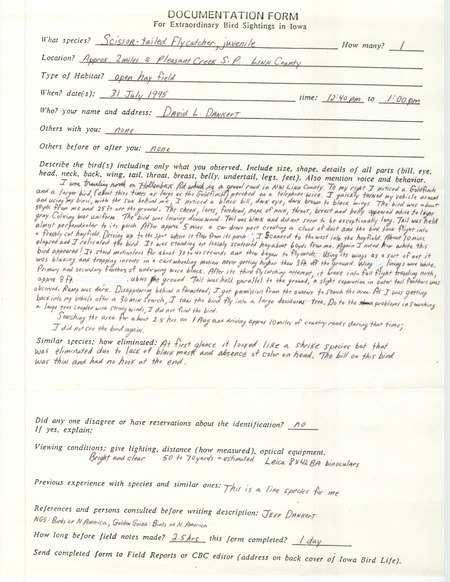 DOCUMENTATION FORM
For Extraordinary Bird Sightings in Iowa
What species? Scissor-tailed Flycatcher, juvenile How many? 1
Location? Approx 2 miles S Pleasant Creek S.P. LINN County
Type of Habitat? open hay field
When? date(s): 31 July 1995 time: 12:40pm to 1:00pm
Who? your name and address: David L. Dankert
Others with you? none
Others before or after you? none
Describe the bird(s) including only what you observed. Include size, shape, details of all parts (bill, eye,
head, neck, back, wing, tail, throat, breast, belly, undertail, legs, feet). Also mention voice and behavior.
I was traveling north on Hollenbeck Rd which is a gravel road in NW Linn County. To my right I noticed a Goldfinch
and a larger bird, (about three times as large as the Goldfinch) perched on a telephone wire. I quickly turned my vehicle around
and using my binos, with the sun behind me, I noticed a black bill, dark eye, dark brown to black wings. The bird was about
50yds from me and 25ft off the ground. The cheek, lores, forehead, nape of neck, throat, breast and belly appeared white to light
gray. Coloring was uniform. The bird was facing downward. Tail was black and did not seem to be exceptionally long. Tail was held
almost perpendicular to its perch. After approx 5 mins a car drove past creating a cloud of dust and the bird took flight into
a freshly cut hayfield. Driving up to the spot where it flew from its perch, I scanned to the west into the hayfield. About 10 mins
elapsed and I relocated the bird. It was standing on loosely scattered hay about 60yds from me. Again I noted how white this
bird appeared! It stood motionless for about 30 to 40 seconds and then began to flycatch. Using its wings as a sort of net it
was flexing and trapping insects in a cartwheeling motion never getting higher than 3 ft off the ground. Wing linings were white.
Primary and secondary feathers of underwing were black. After its third flycatching attempt, it broke into full flight traveling north,
approx 8 ft. above the ground. Tail was held parallel to the ground, a slight separation in outer tail feathers was
observed. Rump was dark. Disappearing behind a farmstead, I got permission from the owner to search the area. As I was getting
back into my vehicle after a 30 min search, I saw the bird fly into a large deciduous tree. Due to the problems in searching
a large tree coupled with strong winds, I did not find the bird.
Searching the area for about 2½ hrs on 1 Aug and driving approx 10 miles of country roads during that time;
I did not see the bird again.
Similar species; how eliminated: At first glance it looked like a shrike species but that
was eliminated due to lack of black mask and absence of color on head. The bill on this bird
was thin and had no hook at the end.
Did any one disagree or have reservations about the identification? no
If yes, explain:
Viewing conditions: give lighting, distance (how measured), optical equipment.
Bright and clear 50 to 70 yards - estimated Leica 8x42BA binoculars
Previous experience with species and similar ones: This is a life species for me
References and persons consulted before writing description: Jeff Dankert
NGS: Birds of N. America, Golden Guide: Birds of N. America
How long before field notes made? 2.5 hrs this form completed? 1 day
Send completed form to Field Reports or CBC editor (address on back cover of Iowa Bird Life).